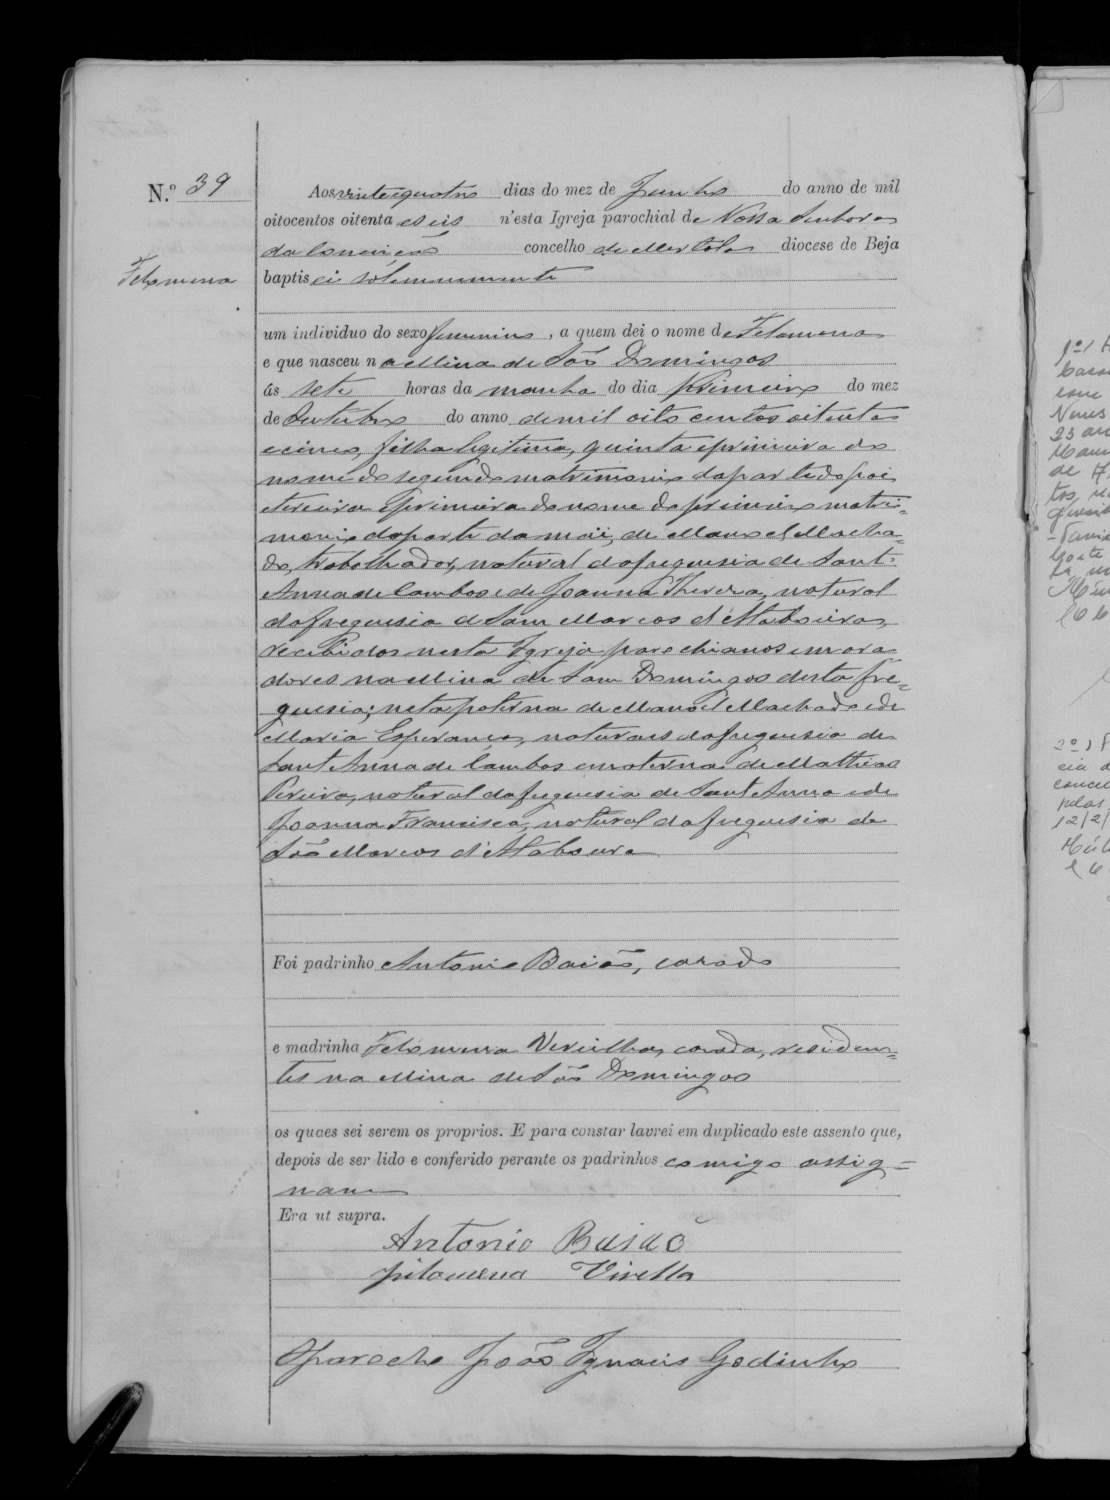 N.º 39
Aos vinte e quatro dias do mez de Junho do anno de mil
oitocentos oitenta e seis n'esta Igreja parochial de Nossa Senhora
da Conceição concelho de Mertola diocese de Beja
Felomena
baptisei solemnemente
um individuo do sexo femenino, a quem dei o nome de Felomena
e que nasceu na Mina de São Domingos
ás sete horas da manha do dia primeiro do mez
de Outubro do anno de mil oito centos oitenta
e cinco, filha legitima, quinta e primeira do
nome do segundo matrimonio da parte do pai
e terceira e primeira do nome do primeiro matri=
monio da parte da mãi, de Manoel Macha-
do, trabalhador, natural da freguesia de Sant'
Anna de Cambas e de Joanna Thereza, natural
da freguesia de Sam Marcos d'Ataboeira,
recebidos nesta Igreja parochial e mora-
dores na Mina de Sam Domingos desta fre=
guesia; neta paterna de Manoel Machado e de
Maria Esperança, naturaes da freguesia de
Sant Anna de Cambas e materna de Mathias
Pereira, natural da freguesia de Sant Anna e de
Joanna Francisca, natural da freguesia de
São Marcos d'Ataboeira
Foi padrinho Antonio Baião, casado
e madrinha Felomena casada, residen=
tes na Mina de São Domingos
os quaes sei serem os proprios. E para constar lavrei em duplicado este assento que,
depois de ser lido e conferido perante os padrinhos comigo assig=
nam
Era ut supra.
Antonio Baiaõ
filomena Virella
O parocho João Ignacio Godinho